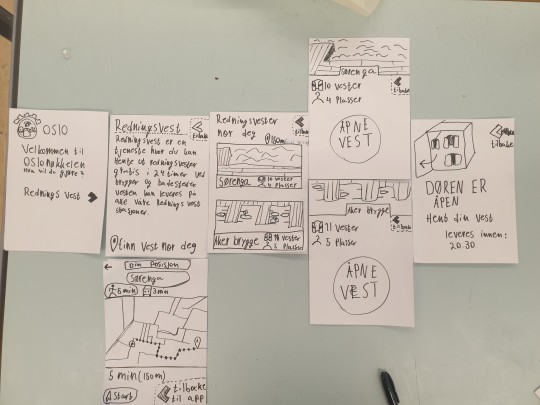 OSLO
Velkommen til
Oslonøkkelen
Rednings vest
Redningsvest
tilbake
Redningsvest er en
tjeneste hvor du kan
Hente ut redningsvester
gratis i 24 timer ved
brygger og badesteder
vesten kan leveres på
alle våre Rednings vest
stasjoner.
Finn vest nær deg
Redningsvester
nær deg
tilbake
150m
Sørenga
10 vester
4 plasser
Aker brygge
11 vester
5 plasser
Sørenga
10 vester
4 Plasser
tilbake
ÅPNE
VEST
Aker brygge
11 vester
5 Plasser
tilbake
ÅPNE
VEST
tilbake
DØREN ER
ÅPEN
Hent din vest
leveres innen:
20.30
Din Posisjon
Sørenga
5 min
3 min
5 min (150m)
Start
tilbake
til app